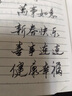 万事如意
新春快乐
喜事连连
健康幸福